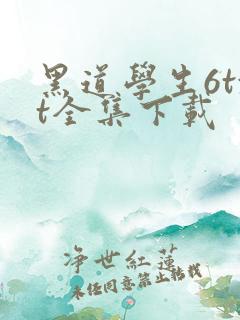 黑道學生6tx
t全集下載
净世紅蓮
未经同意禁止转载